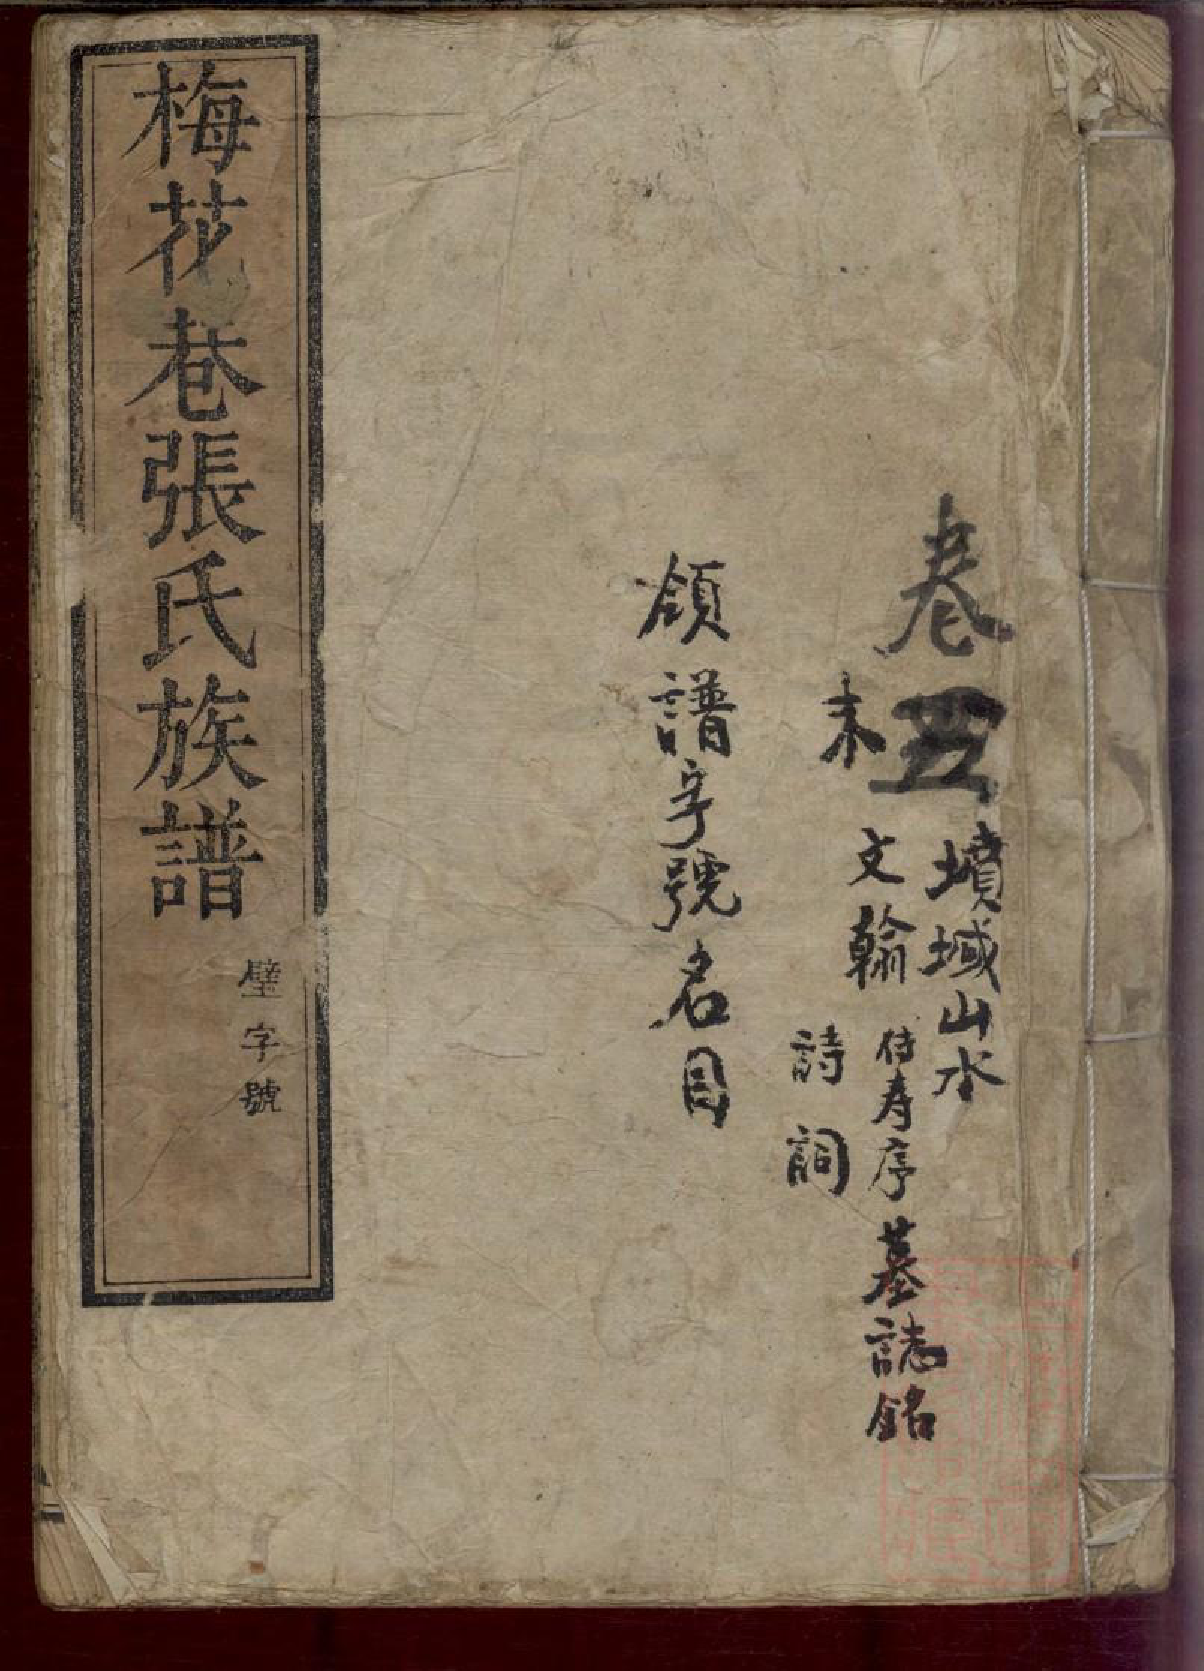 卷五
墳域山水
末
文翰
傳寿序墓誌銘
詩詞
領譜字號名目
梅花巷張氏族譜
璧字號